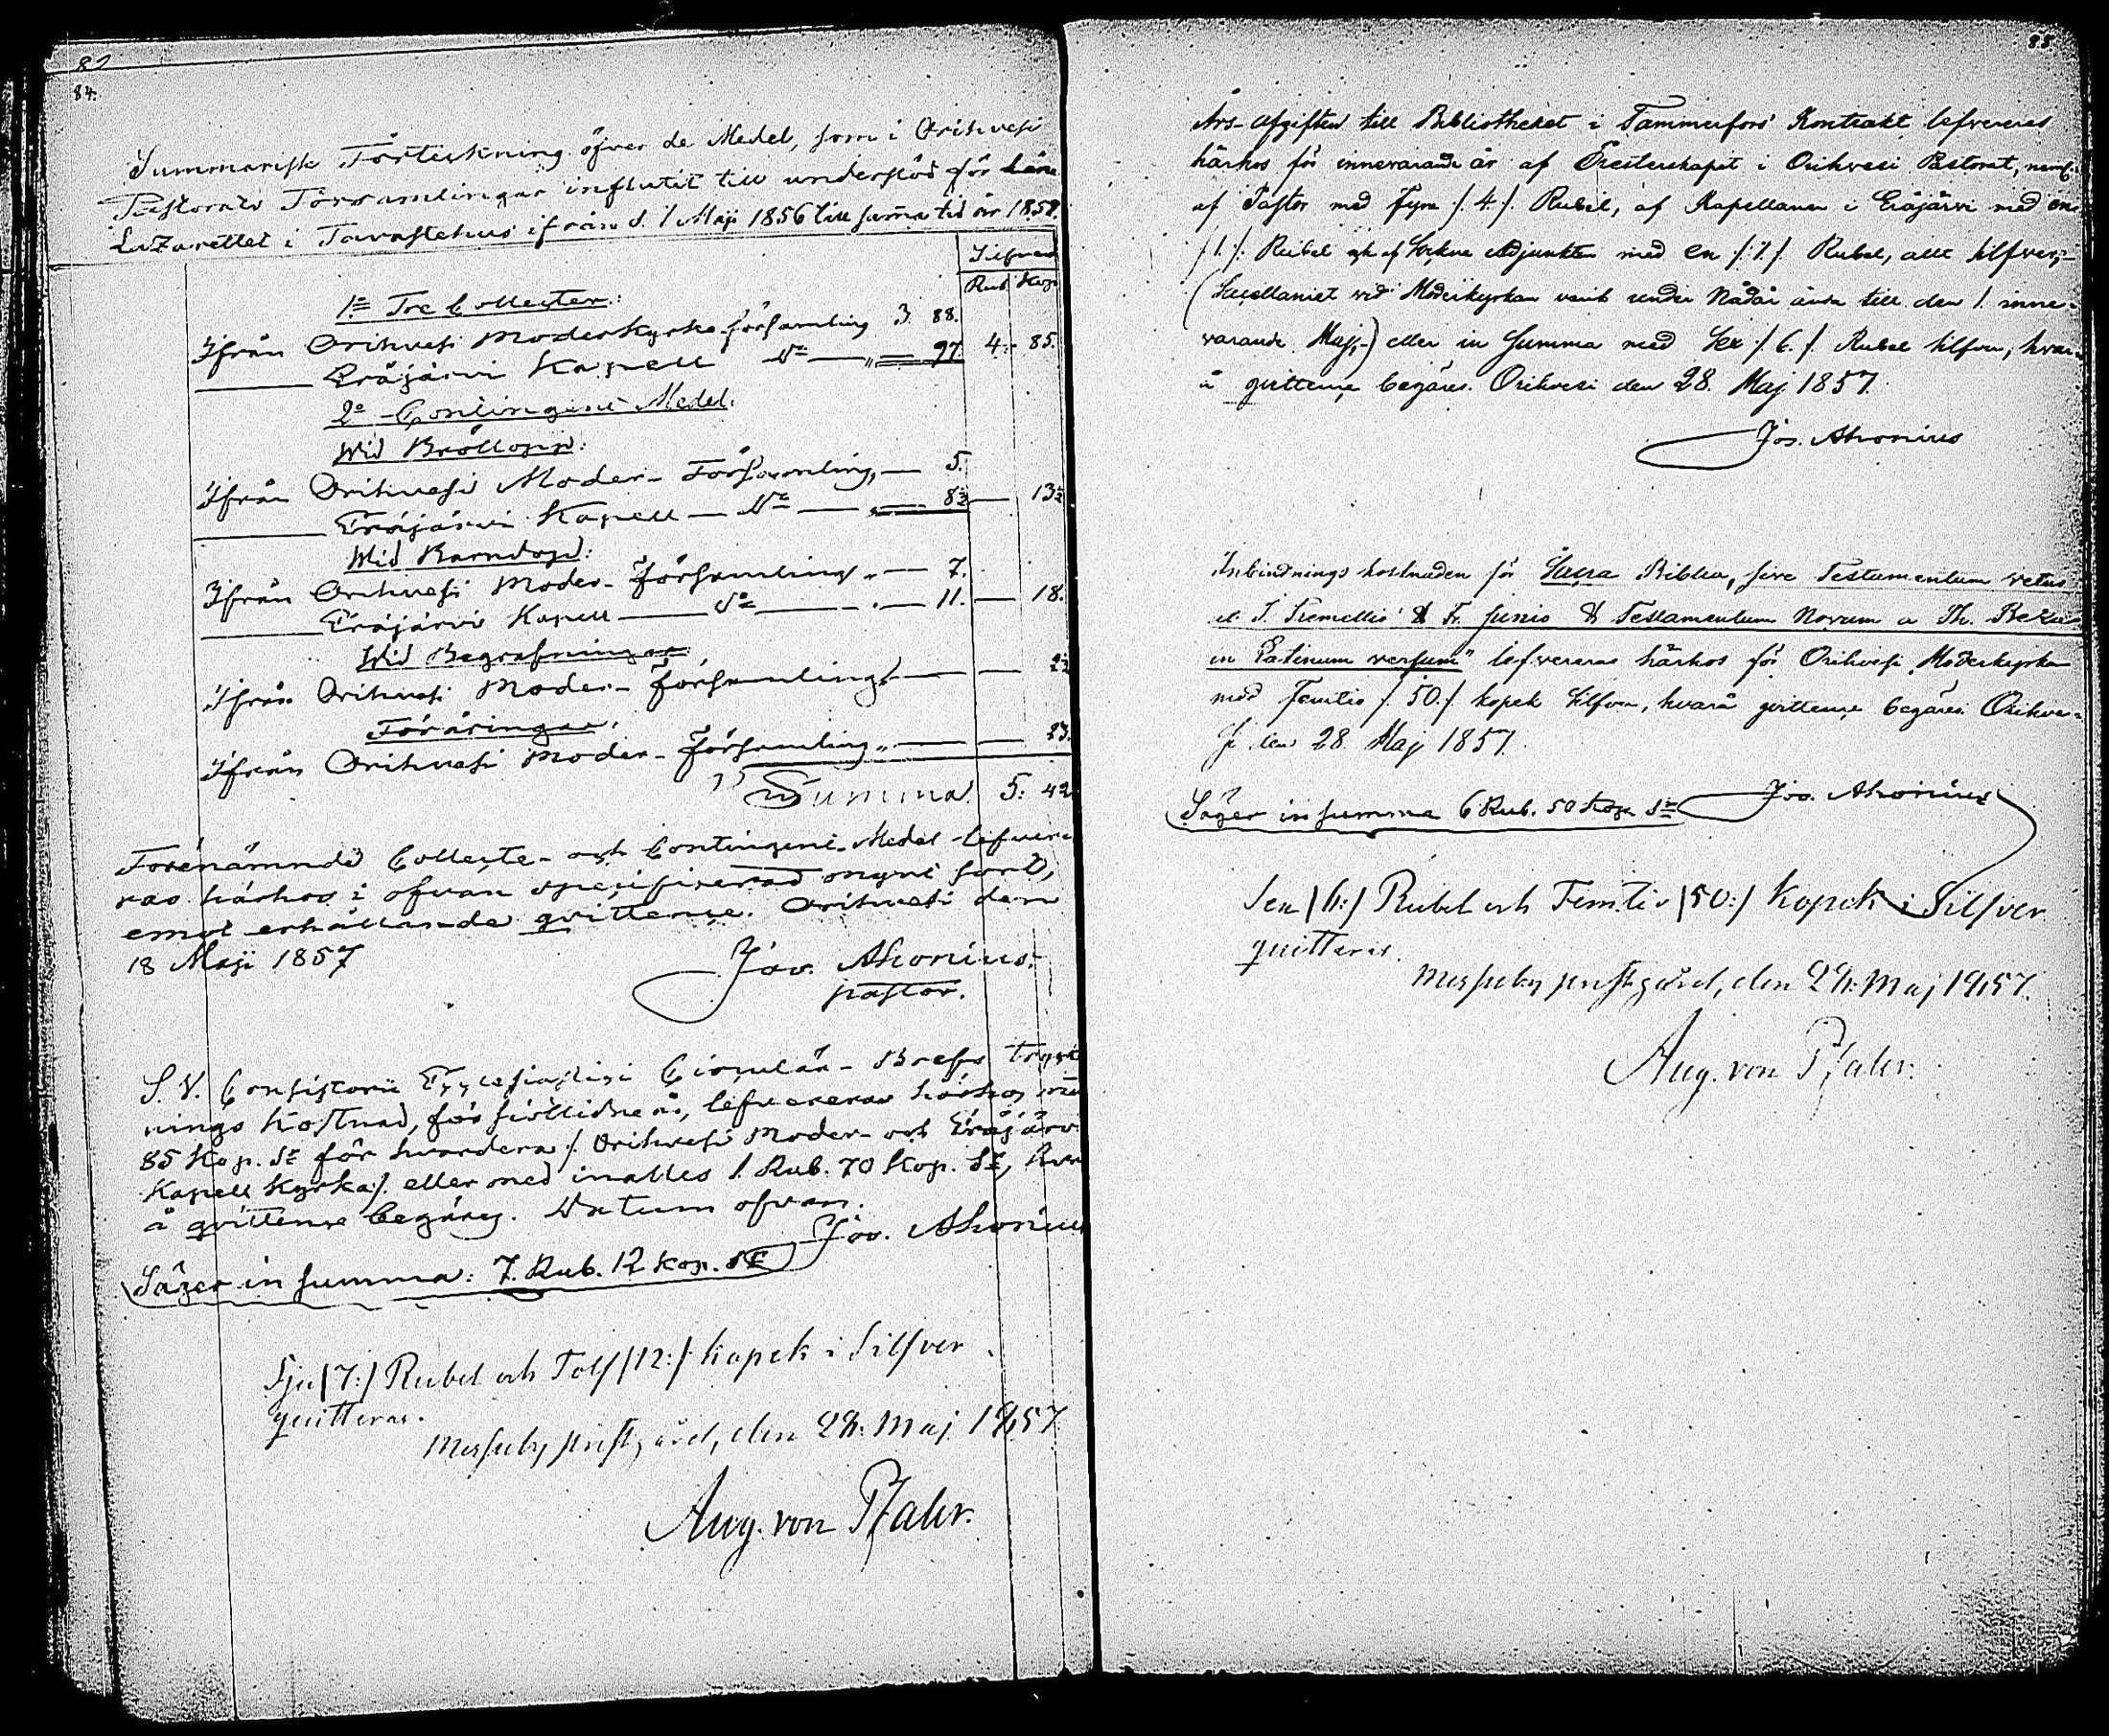 82
84.
Summarisk Förteckning öfver de Medel, som i Orihvesi
Pastorats Församlingar influtit till understöd för Läns
Lazarettet i Tavastehus ifrån d. 1 Maji 1856 till samma tid år 1857.
Silfver
Rub. Kop.
1:o Tre Collecter:
Ifrån Orihvesi Moderkyrko-församling 3. 88.
Eräjärvi Kapell d:o — „ — 97. 4: 85.
2:o Contingent-Medel.
Wid Bröllopp:
Ifrån Orihvesi Moder-Församling, — 5.
Eräjärvi Kapell — d:o — „ — 8½ — 13½
Wid Barndop:
Ifrån Orihvesi Moder-församling „ — 7.
Eräjärvi Kapell — d:o — „ — 11. — 18.
Wid Begrafningar
Ifrån Orihvesi Moder-församling — — 2½
Föräringar.
Ifrån Orihvesi Moder-församling „ — — 23.
Summa 5: 42
Förenämnde Collecte- och Contingent-Medel lefvere-
ras härhos i ofvan specificerad mynt sort,
emot erhållande qvittence. Orihvesi den
18 Maji 1857
Jos. Ahonius.
pastor.
S. V. Consistorii Ecclesiastici Circulär-Brefs tryck
nings Kostnad, för sistlidne år, lefvereras härhos med
85 Kop. S:r för hvardera /. Orihvesi Moder- och Eräjärvi
Kapell Kyrka/. eller med inalles 1. Rub. 70 Kop. S:r, hvar
å qvittence begäres. Datum ofvan.
Jos. Ahonius
Säger in summa: 7. Rub. 12 Kop. S:r
Sju /7:/ Rubel och Tolf /12:/ Kopek i Silfver
quitteras.
Messuby prestgård, den 28: Maj 1857
Aug. von Pfaler.
85.
Års-afgiften till Bibliotheket i Tammerfors Kontrakt lefvereras
härhos för innevarande år af Presterskapet i Orihvesi Pastorat, neml:
af Pastor med Fyra /. 4. /. Rubel, af Kapellanen i Eräjärvi med en
/. 1. /. Rubel och af Sockne Adjunkten med en /. 1. /. Rubel, allt silfver,-
(Sacellaniet vid Moderkyrkan varit under Nådår ända till den 1. inne-
varande Maj,-) eller in Summa med Sex /. 6. /. Rubel silfver, hvar-
å qvittence begäres. Orihvesi den 28. Maj 1857.
Jos. Ahonius
Inbindnings kostnaden för Sacra Biblia, sive Testamentum vetus
ab I. Tremellio & Fr. Junio & Testamentum Novum a Th. Beza
in Latinum versum" lefvereras härhos för Orihvesi Moderkyrka
med Femtio /. 50. /. kopek silfver, hvarå qvittence begäres. Orihve-
si den 28. Maj 1857.
Jos. Ahonius
Säger in summa 6 Rub. 50 Kop. S:r
Sex /6:/ Rubel och Femtio /50:/ Kopek i Silfver
quitteras.
Messuby prestgård, den 28: Maj 1857.
Aug. von Pfaler.